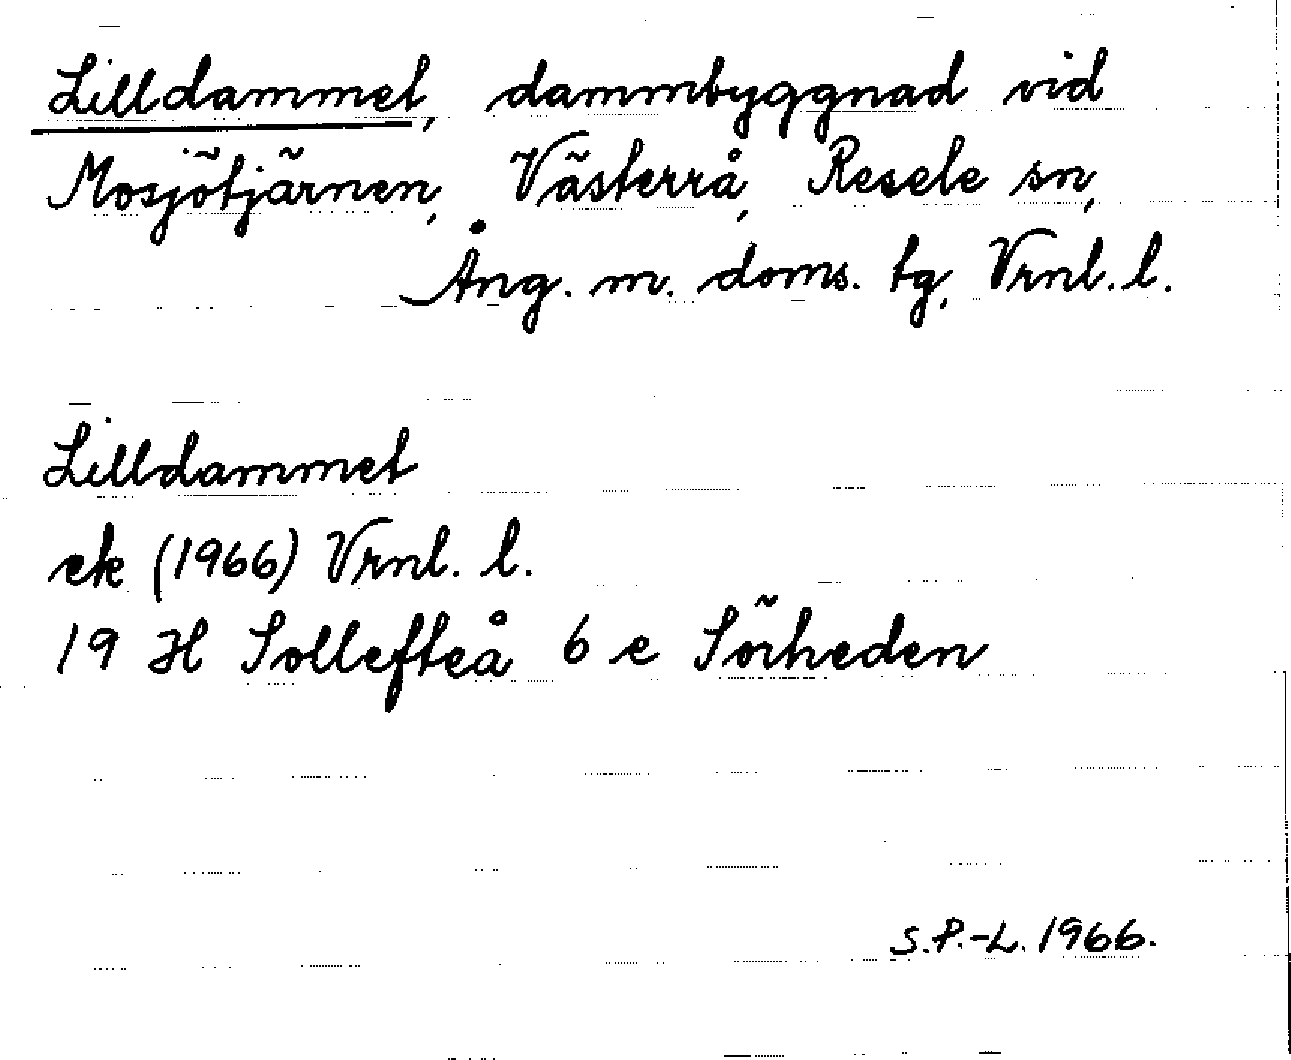 Lilldammet, dammbyggnad vid
Mosjötjärnen, Västerrå, Resele sn,
Ång. m. doms. tg, Vrnl. l.
Lilldammet
ek (1966) Vrnl. l.
19 H Sollefteå 6 e Sörheden
S.P.-L. 1966.